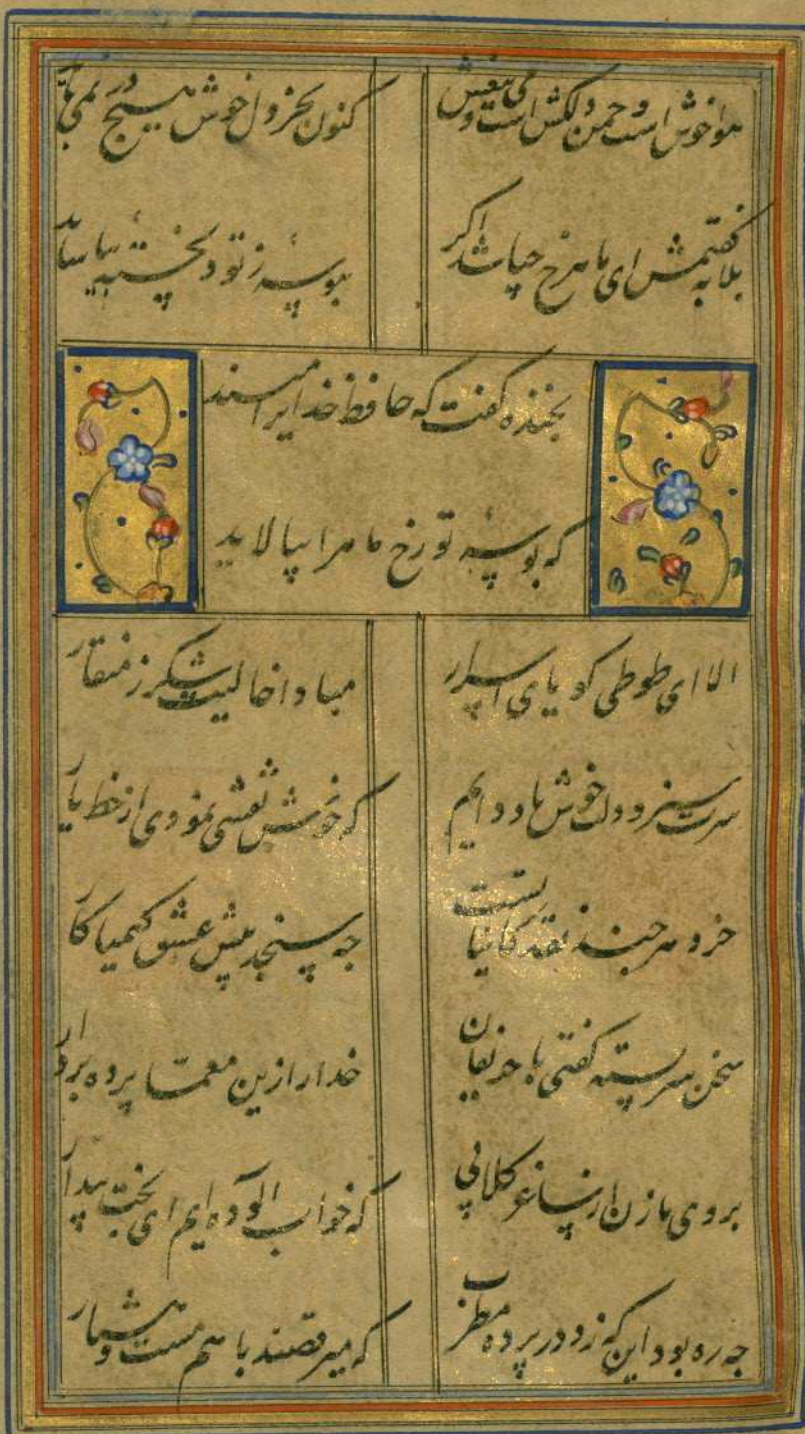 هوا خوش است و چمن دلکش است و می بیغش
کنون بجز دل خوش هیچ در نمی باید
بلابه کفتمش ای ماه رخ چه باشد اکر
ببوسۀ ز تو دلخستۀ بیاساید
بخنده کفت که حافظ خدایرا مپسند
که بوسۀ تو رخ ماه را بیالاید
الا ای طوطی کویای اسرار
مبادا خالیت شکر ز منقار
سرت سبز و دلت خوش باد دایم
که خوش نقشی نمودی از خط یار
خرد هر چند نقد کایناتست
چه سنجد پیش عشق کیمیاکار
سخن سربسته کفتی با حریفان
خدارا زین معما پرده بردار
بروی ما زن از ساغر کلابی
که خواب آلوده ایم ای بخت بیدار
چه ره بود این که زد در پرده مطرب
که میرقصند با هم مست و هشیار